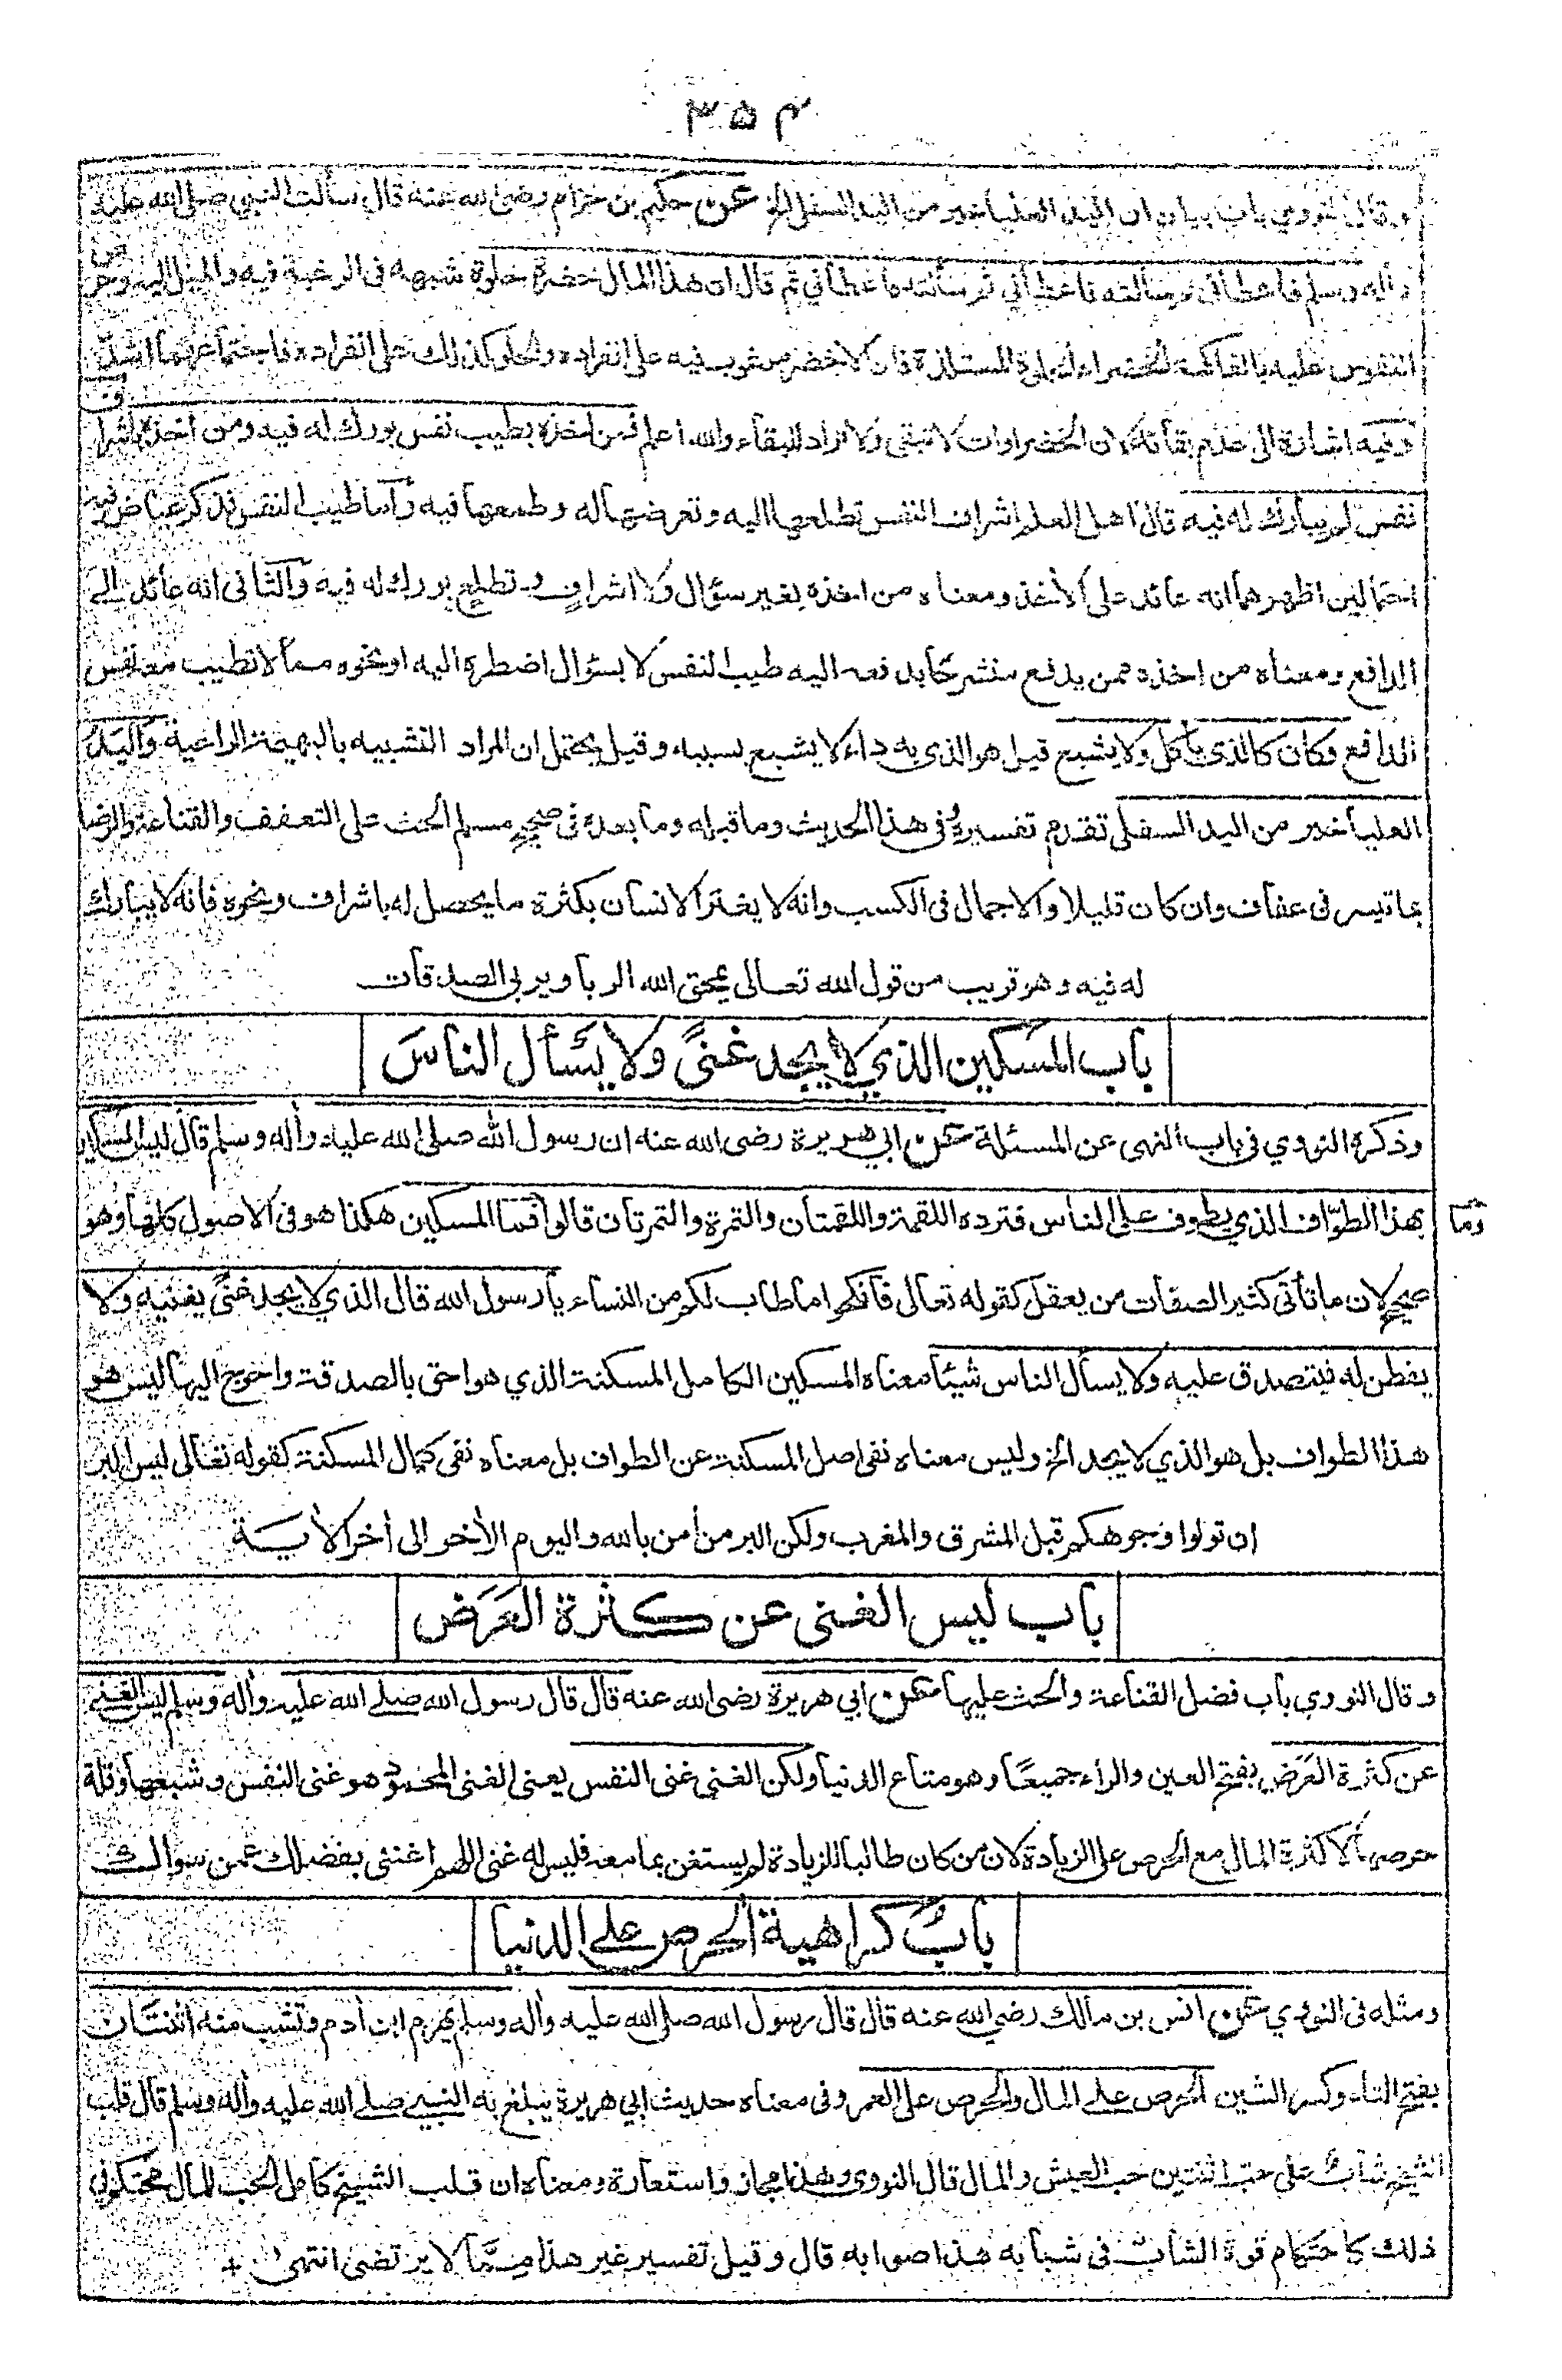 ٣٥٤
وقال النووي باب بيان ان اليد العليا خير من اليد السفلى الخ عن حكيم بن حزام رضي الله عنه قال سألت النبي صلى الله عليه
وأله وسلم فاعطاني ثم سألته فاعطاني ثم سألته فاعطاني ثم قال ان هذا المال خضرة حلوة شبهه في الرغبة فيه والميل اليه وحرص
النفوس عليه بالفاكهة الخضراء الحلوة المستلذة فان الاخضر مرغوب فيه على انفراده والحلو كذلك على انفراده فاجتماعهما اشد
وفيه اشارة الى عدم بقائه لان الخضراوات لا تبقى ولا تراد للبقاء والله اعلم فمن اخذه بطيب نفس بورك له فيه ومن اخذه باشراف
نفس لم يبارك له فيه قال اهل العلم اشراف النفس تطلعها اليه وتعرضها له وطمعها فيه وأما طيب النفس فذكر عياض فيه
احتمالين اظهرهما انه عائد على الأخذ ومعناه من اخذه بغير سؤال ولا اشراف و تطلع بورك له فيه والثاني انه عائد الى
الدافع ومعناه من اخذه ممن يدفع منشرحا بدفعه اليه طيب النفس لا بسؤال اضطره اليه او نحوه مما لا تطيب معه نفس
الدافع وكان كالذي يأكل ولا يشبع قيل هو الذي به داء لا يشبع بسببه وقيل يحتمل ان المراد التشبيه بالبهيمة الراعية واليد
العليا خير من اليد السفلى تقدم تفسيره وفي هذا الحديث وما قبله وما بعده في صحيح مسلم الحث على التعفف والقناعة والرضا
بما تيسر في عفاف وان كان قليلا والاجمال في الكسب وانه لا يغتر الانسان بكثرة ما يحصل له باشراف ونحوه فانه لا يبارك
له فيه وهو قريب من قول الله تعالى يمحق الله الربا ويربي الصدقات
باب المسكين الذي لا يجد غنىً ولا يسأل الناس
وذكره النووي في باب النهى عن المسئلة عن ابي هريرة رضى الله عنه ان رسول الله صلى الله عليه وأله وسلم قال ليس المسكين
بهذا الطوّاف الذي يطوف على الناس فترده اللقمة واللقمتان والتمرة والتمرتان قالوا فما المسكين هكذا هو في الاصول كلها وهو
وما
صحيح لان ما تأتي كثير الصفات من يعقل كقوله تعالى فانكحوا ما طاب لكم من النساء يا رسول الله قال الذي لا يجد غنىً يغنيه ولا
يفطن له فيتصدق عليه ولا يسأل الناس شيئا معناه المسكين الكامل المسكنة الذي هو احق بالصدقة واحوج اليها ليس هو
هذا الطواف بل هو الذي لا يجد الخ وليس معناه نفى اصل المسكنة عن الطواف بل معناه نفى كمال المسكنة كقوله تعالى ليس البر
ان تولوا وجوهكم قبل المشرق والمغرب ولكن البر من أمن بالله واليوم الأخر الى أخر الأية
باب ليس الغنى عن كثرة العَرَض
وقال النووي باب فضل القناعة والحث عليها عن ابي هريرة رضى الله عنه قال قال رسول الله صلى الله عليه وأله وسلم ليس الغنى
عن كثرة العَرَض بفتح العين والراء جميعًا وهو متاع الدنيا ولكن الغنى غنى النفس يعنى الغنى المحمود هو غنى النفس وشبعها وقلة
حرصها لا كثرة المال مع الحرص على الزيادة لان من كان طالبا للزيادة لم يستغن بما معه فليس له غنى اللهم اغننى بفضلك عمن سواك
باب كراهية الحرص على الدنيا
ومثله في النووي عن انس بن مالك رضي الله عنه قال قال رسول الله صلى الله عليه وأله وسلم يهرم ابن أدم وتشب منه اثنتان
بفتح التاء وكسر الشين الحرص على المال والحرص على العمر وفى معناه حديث ابي هريرة يبلغ به النبي صلى الله عليه وأله وسلم قال قلب
الشيخ شاب على حب اثنتين حب العيش والمال قال النووى وهذا مجاز واستعارة ومعناه ان قلب الشيخ كامل الحب للمال محتكم في
ذلك كاحتكام قوة الشاب في شبابه هذا صوابه قال وقيل تفسير غير هذا ممّا لا يرتضى انتهى +